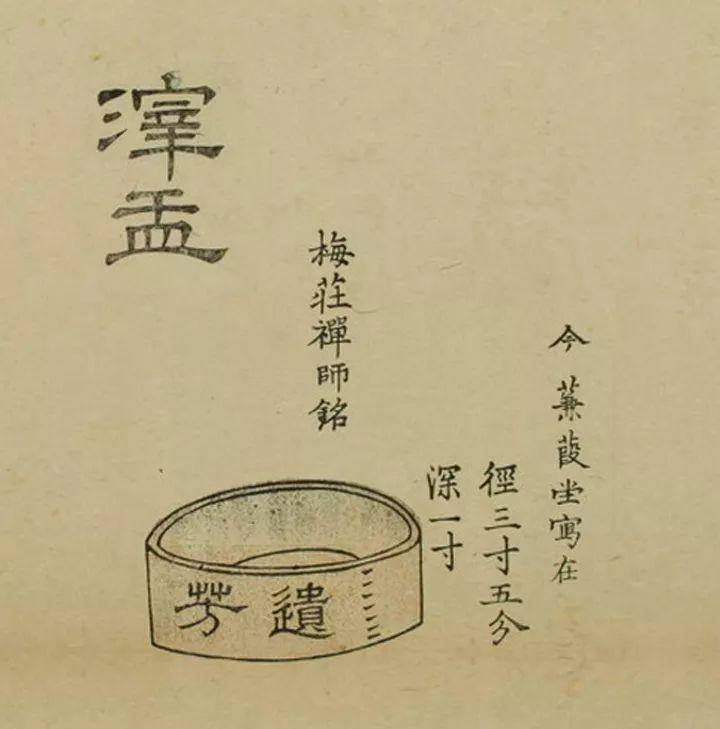 滓盂
今 蒹葭堂寫在
徑三寸五分
深一寸
梅莊禪師銘
遺芳